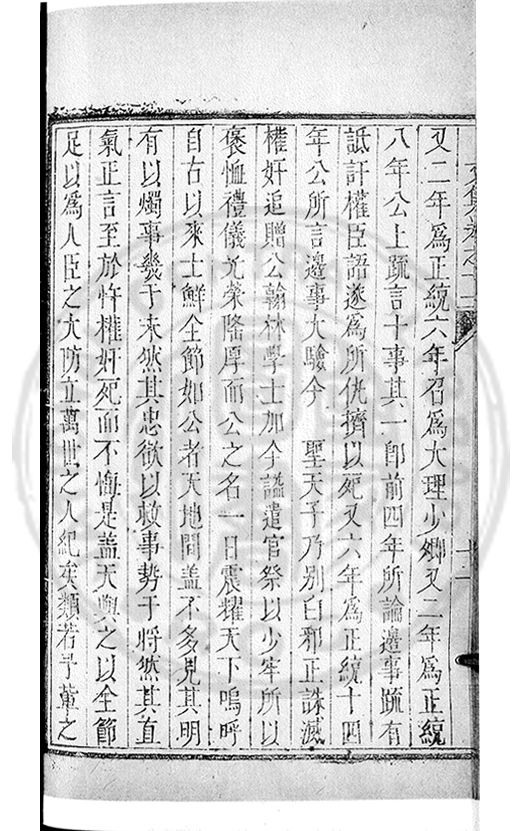 又二年爲正統六年召爲大理少卿又二年爲正統
八年公上疏言十事其一卽前四年所論邊事疏有
詆訐權臣語遂爲所仇擠以死又六年爲正統十四
年公所言邊事大驗今 聖天子乃别白邪正誅滅
權奸追贈公翰林學士加今謚遣官祭以少牢所以
褒恤禮儀尤榮隆厚而公之名一日震耀天下嗚呼
自古以來士鮮全節如公者天地間盖不多見其明
有以燭事幾于未然其忠欲以救事勢于將然其直
氣正言至於忤權奸死而不悔是盖天與之以全節
足以爲人臣之大防立萬世之人紀矣類若予輩之